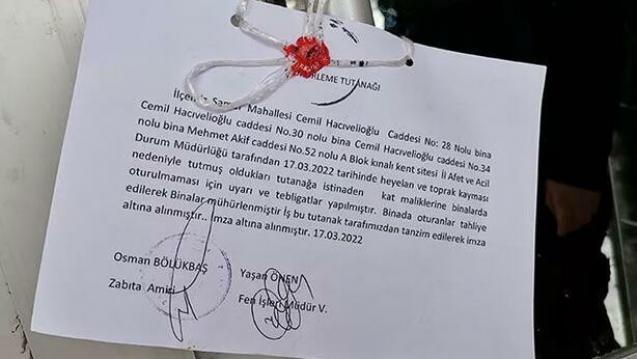 RLEME TUTANAĞI
İlçemiz Mahallesi Cemil Hacıvelioğlu Caddesi No: 28 Nolu bina
Cemil Hacıvelioğlu caddesi No.30 nolu bina Cemil Hacıvelioğlu caddesi No.34
nolu bina Mehmet Akif caddesi No.52 nolu A Blok kınalı kent sitesi İl Afet ve Acil
Durum Müdürlüğü tarafından 17.03.2022 tarihinde heyelan ve toprak kayması
nedeniyle tutmuş oldukları tutanağa istinaden kat maliklerine binalarda
oturulmaması için uyarı ve tebligatlar yapılmıştır. Binada oturanlar tahliye
edilerek Binalar mühürlenmiştir İş bu tutanak tarafımızdan tanzim edilerek imza
altına alınmıştır.. İmza altına alınmıştır. 17.03.2022
Osman BÖLÜKBAŞ
Yaşan ÖNEN
Zabıta Amiri
Fen İşleri Müdür V.